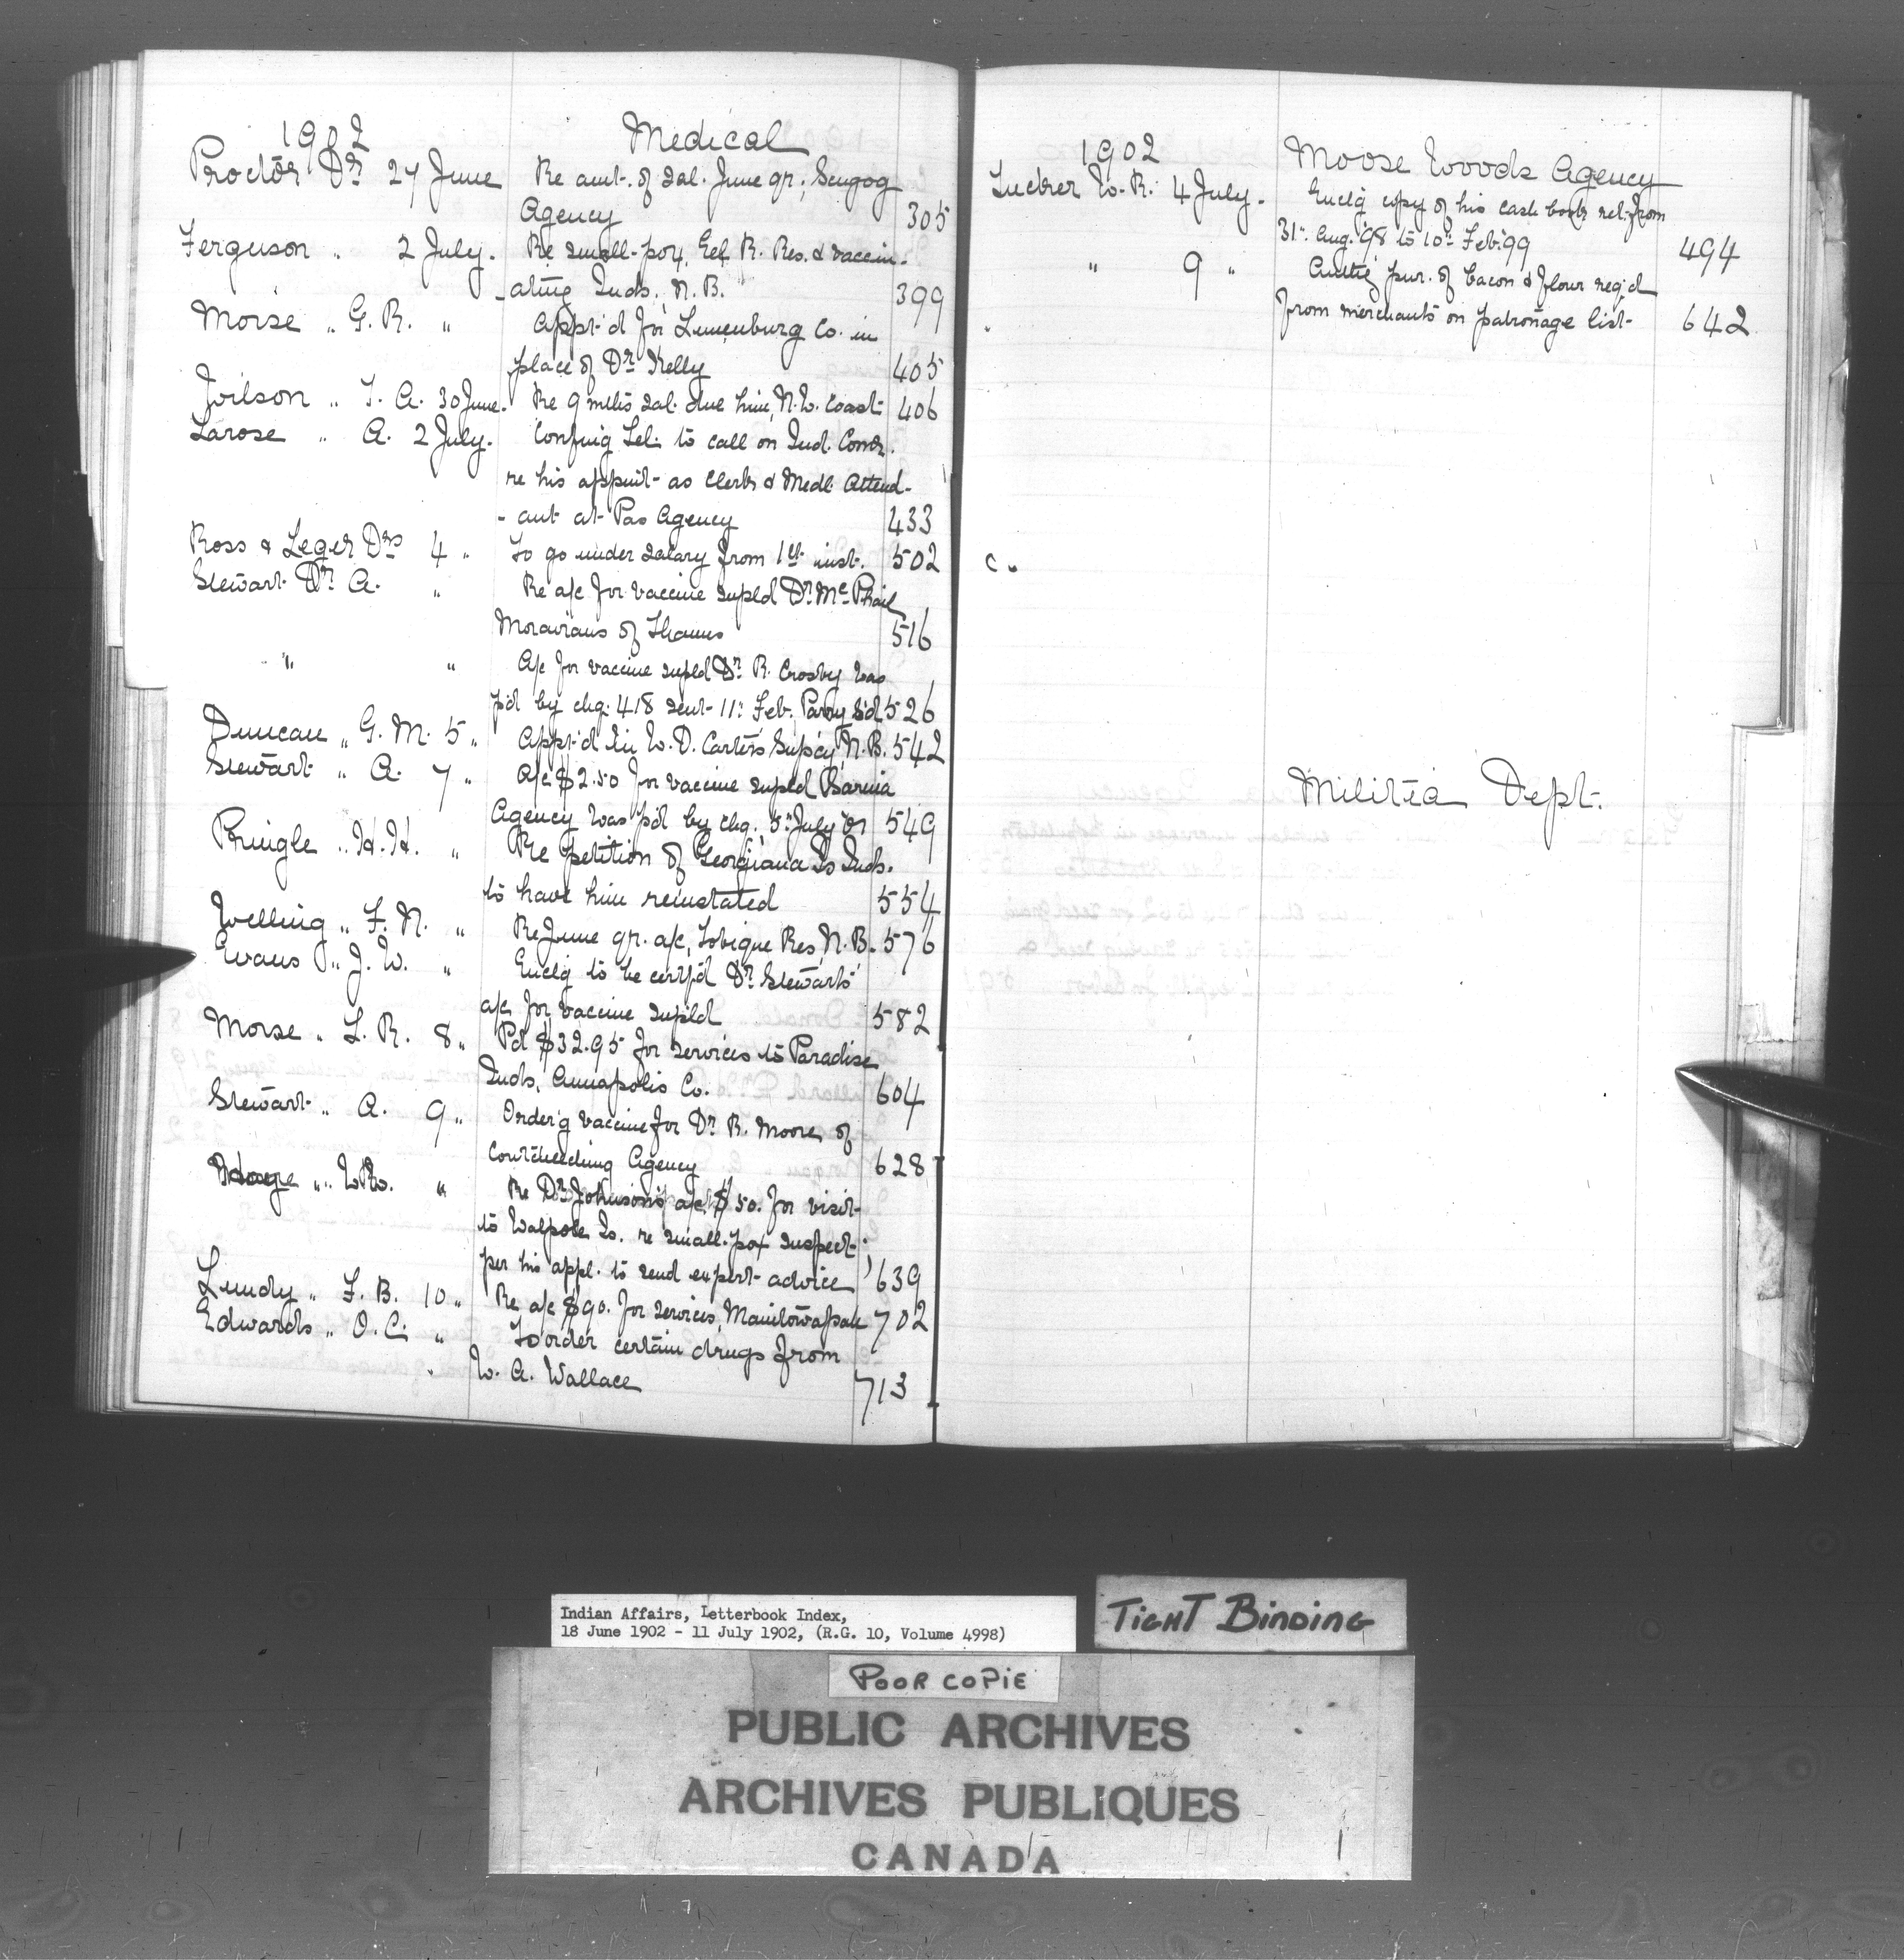 1902 Medical
Proctor Dr 27 June Re amt. of sal. June qr., Scugog
Agency 305
Ferguson " 2 July. Re small-pox, Eel R. Res. & vaccin-
-ating Inds., N.B. 399
Morse " G. R. " Appt'd for Lunenburg Co. in
place of Dr Kelly 405
Wilson " T. A. 30 June. Re 9 mths sal. due him, N.W. Coast 406
Larose " A. 2 July. Confirmg Tel. to call on Ind. Comr.
re his appmt as clerk & Medl. Attend-
-ant at Pas Agency 433
Ross & Leger Drs 4 " To go under salary from 1st inst. 502
Stewart Dr A. " Re a/c for vaccine supld Dr McPhail
Moravians of Thames 516
" " A/c for vaccine supld Dr R. Crosby was
p'd by chq. 418 sent 11th Feb. Parry S'd 526
Duncan " G. M. 5 " Appt'd in W. D. Carter's Supcy N.B. 542
Stewart " A. 7 " A/c $2.50 for vaccine supld Sarnia
Agency was p'd by chq. 5th July 01 549
Pringle " H. H. " Re petition of Georgiana Is Inds.
to have him reinstated 554
Welling " F. N. " Re June qr. a/c, Tobique Res, N.B. 576
Evans " J. W. " Enclg to be certf'd Dr Stewart's
a/c for vaccine supld 582
Morse " L. R. 8 " Pd $32.95 for services to Paradise
Inds. Annapolis Co. 604
Stewart " A. 9 " Order'g vaccine for Dr R. Moore, of
Couchiching Agency 628
" " Re Dr Johnson's a/c $50. for visit
to Walpole Is. re small-pox suspect;
per his appl. to send expert advice 639
Lundy " F. B. 10 " Re a/c $90. for services, Manitowapah 702
Edwards " O. C. " To order certain drugs from
W. A. Wallace 713
1902 Moose Woods Agency
Tucker W. R. 4 July. Enclg copy of his cash book rel. from
31st. Aug. '98 to 10th Feb. '99 494
" 9 " Authg pur. of bacon & flour req'd
from merchants on patronage list 642
c.
Militia Dept.
Indian Affairs, Letterbook Index,
18 June 1902 - 11 July 1902, (R.G. 10, Volume 4998)
TIGHT BINDING
POOR COPIE
PUBLIC ARCHIVES
ARCHIVES PUBLIQUES
CANADA